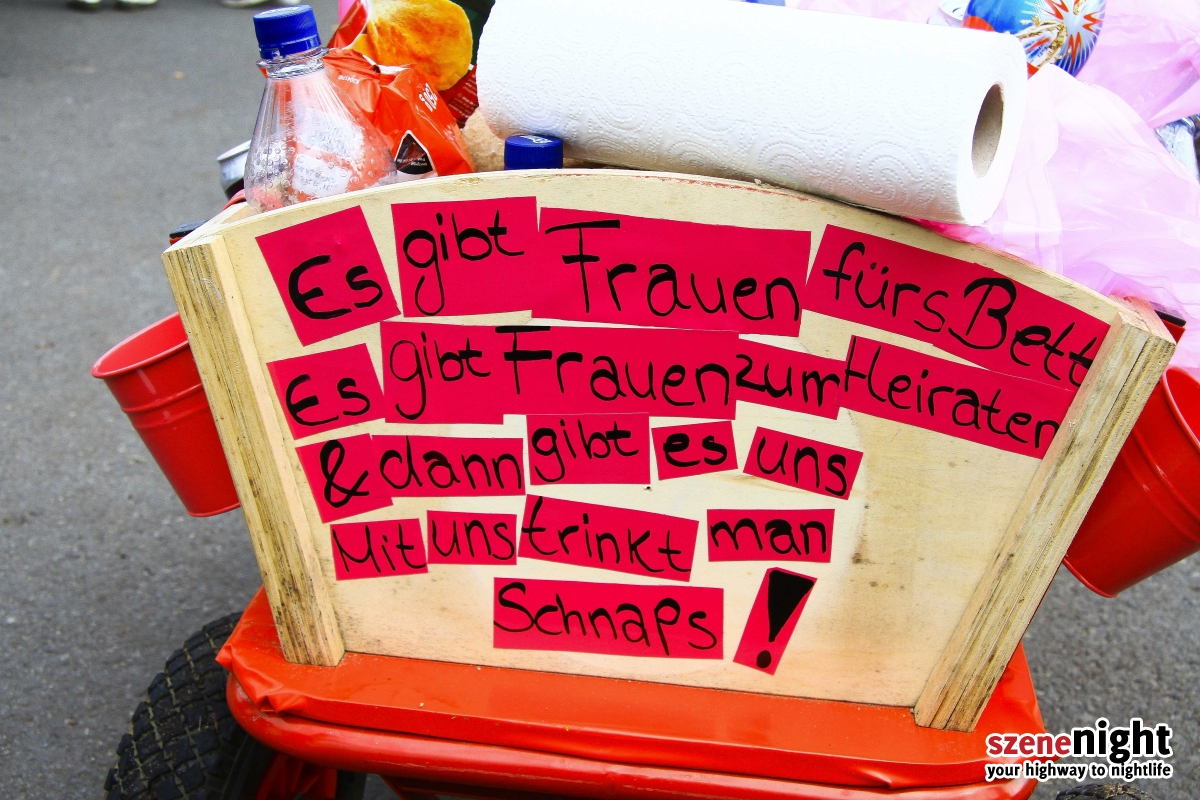 Es gibt Frauen fürs Bett
Es gibt Frauen zum Heiraten
& dann gibt es uns
Mit uns trinkt man
Schnaps!
szenenight
your highway to nightlife